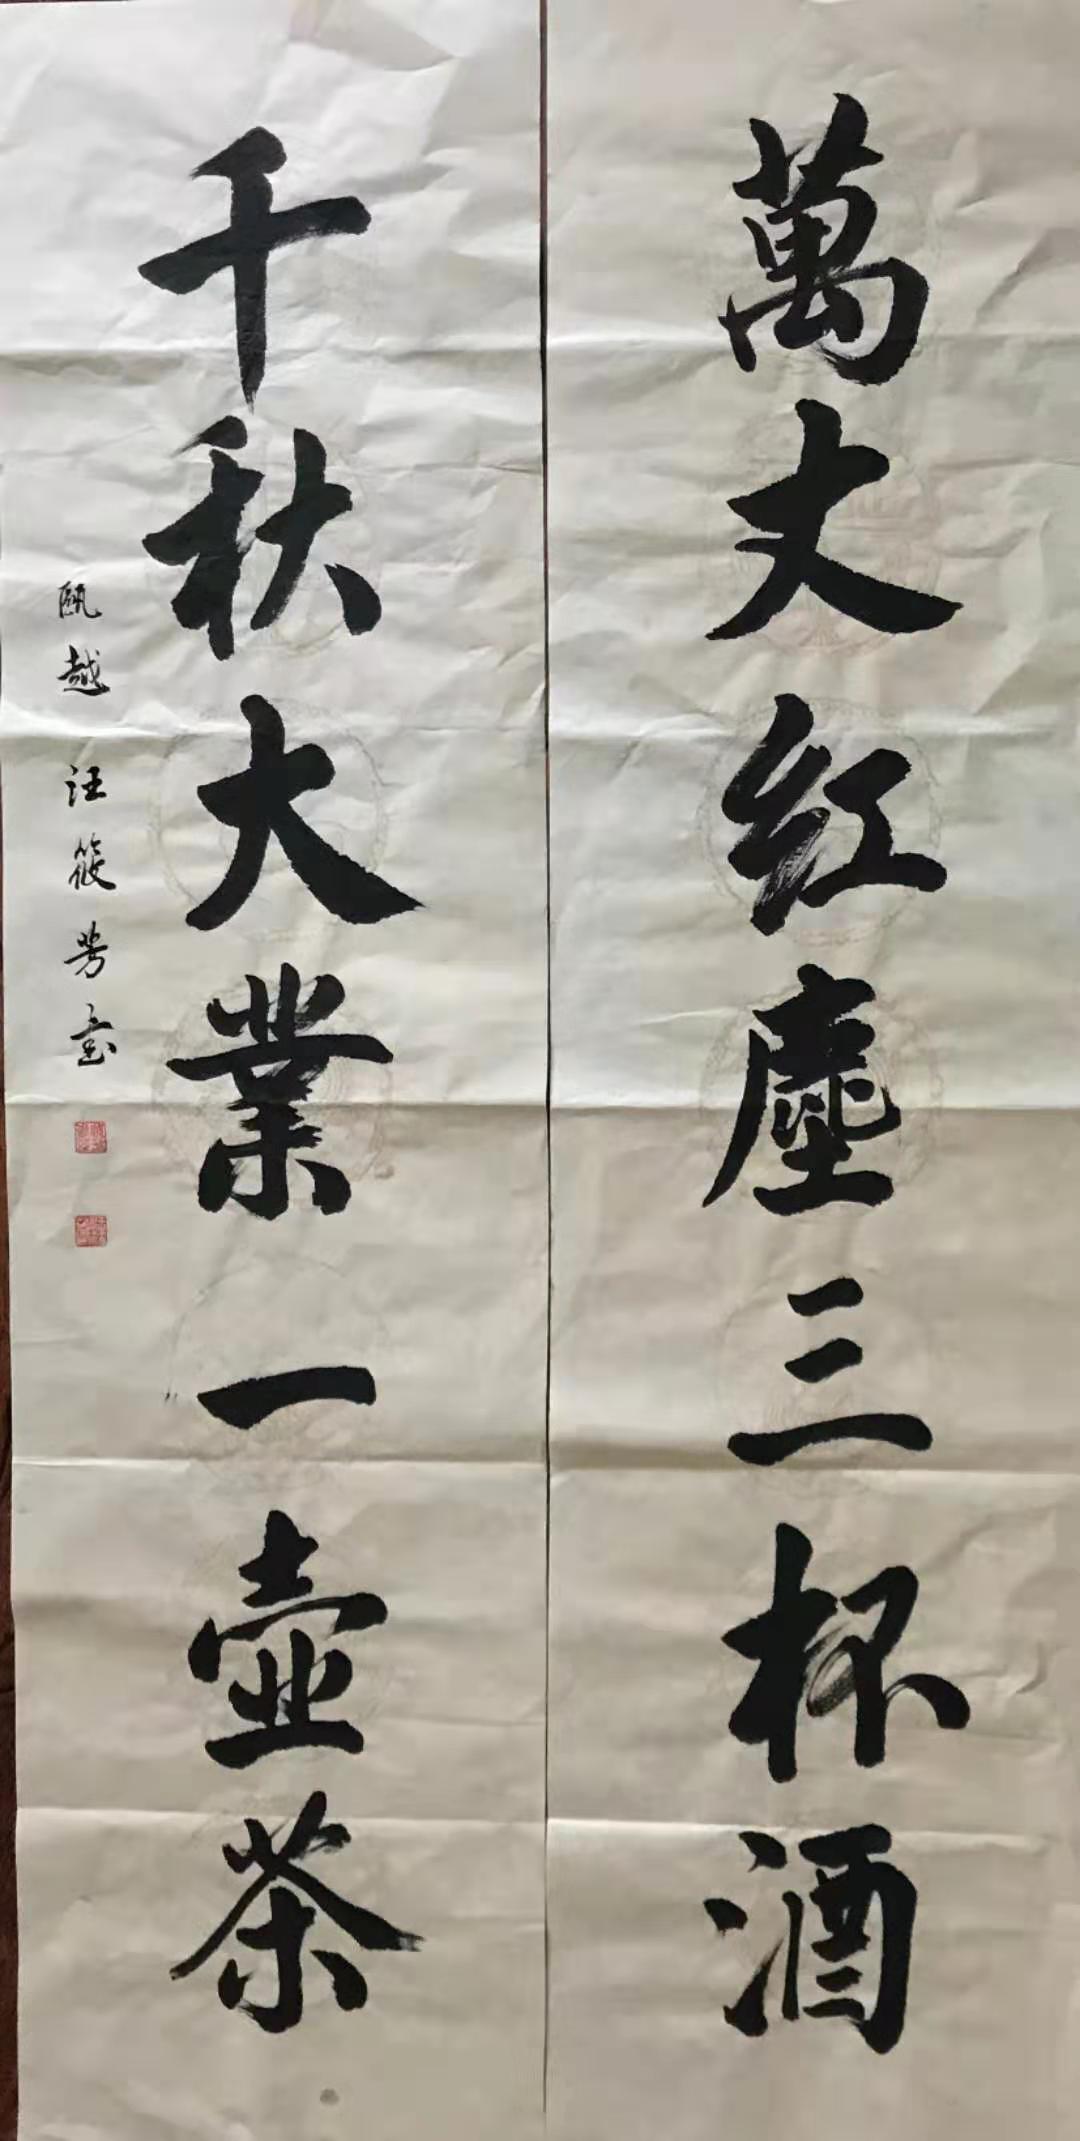 萬丈红塵三杯酒
千秋大業一壺茶
甌越汪筱芳書